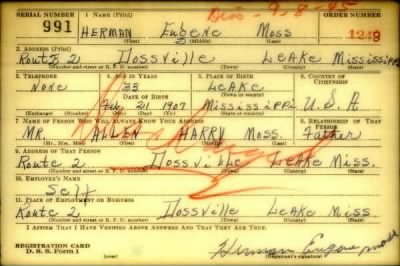 Dis- 9-8-45
SERIAL NUMBER 1. NAME (Print) ORDER NUMBER
991 HERMAN Eugene Moss 1249
(First) (Middle) (Last)
2. ADDRESS (Print)
Route 2 Dossville Leake Mississippi
(Number and street or R. F. D. number) (Town) (County) (State)
3. TELEPHONE 4. AGE IN YEARS 5. PLACE OF BIRTH 6. COUNTRY OF CITIZENSHIP
None 33 Leake
DATE OF BIRTH (Town or county)
Feb 21 1907 Mississippi U.S.A
(Exchange) (Number) (Mo.) (Day) (Yr.) (State or country)
7. NAME OF PERSON WHO WILL ALWAYS KNOW YOUR ADDRESS 8. RELATIONSHIP OF THAT PERSON
Mr. ALLEN HARRY Moss. Father
(Mr., Mrs., Miss) (First) (Middle) (Last)
9. ADDRESS OF THAT PERSON
Route 2 Dossville Leake Miss.
(Number and street or R. F. D. number) (Town) (County) (State)
10. EMPLOYER'S NAME
Self
11. PLACE OF EMPLOYMENT OR BUSINESS
Route 2 Dossville Leake Miss.
(Number and street or R. F. D. number) (Town) (County) (State)
I AFFIRM THAT I HAVE VERIFIED ABOVE ANSWERS AND THAT THEY ARE TRUE.
REGISTRATION CARD
D. S. S. Form 1 Herman Eugene Moss
(Registrant's signature)